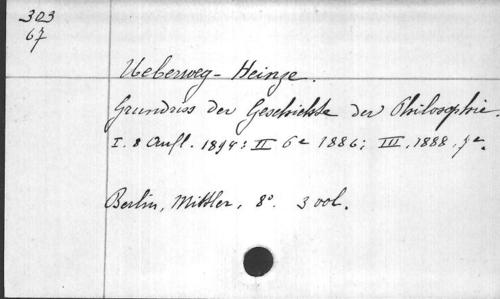 303
67
Ueberweg-Heinze.
Grundriss der Geschichte der Philosophie.
I. 8 Aufl. 1894: II 6e 1886; III, 1888. 7e.
Berlin, Mittler, 8°. 3 vol.